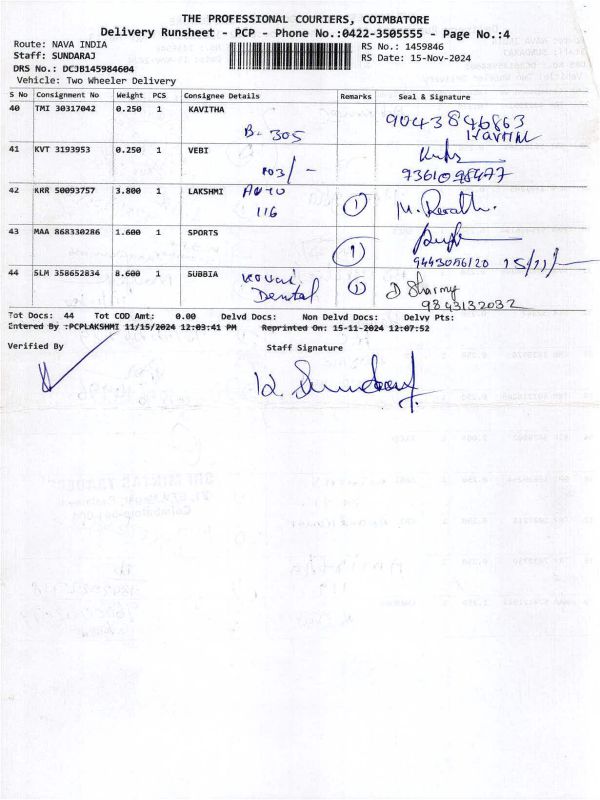 THE PROFESSIONAL COURIERS, COIMBATORE
Delivery Runsheet - PCP - Phone No.:0422-3505555 - Page No.:4
Route: NAVA INDIA RS No.: 1459846
Staff: SUNDARAJ RS Date: 15-Nov-2024
DRS No.: DCJB145984604
Vehicle: Two Wheeler Delivery
S No Consignment No Weight PCS Consignee Details Remarks Seal & Signature
40 TMI 30317042 0.250 1 KAVITHA 9043846863
B. 305 Kavitha
41 KVT 3193953 0.250 1 VEBI
103/-
42 KRR 50093757 3.800 1 LAKSHMI Auto
116 1
43 MAA 868330286 1.600 1 SPORTS
1 9443056120 15/11/
44 SLM 358652834 8.600 1 SUBBIA Kovai 1 D Sharmy
Dental 9843132032
Tot Docs: 44 Tot COD Amt: 0.00 Delvd Docs: Non Delvd Docs: Delvy Pts:
Entered By :PCPLAKSHMI 11/15/2024 12:03:41 PM Reprinted On: 15-11-2024 12:07:52
Verified By Staff Signature